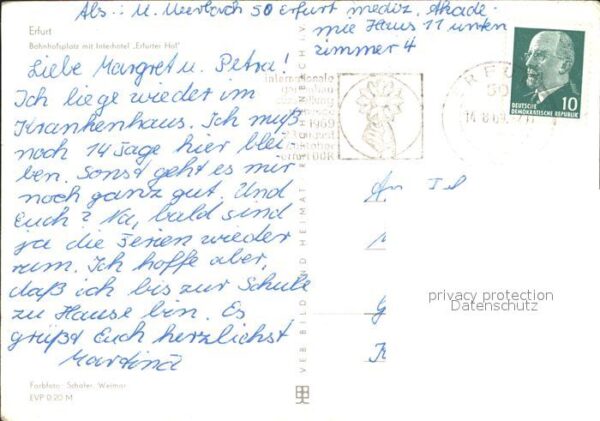 Abs.: M. Meerbach 50 Erfurt mediz. Akade-
mie Haus 11 unten
zimmer 4
Erfurt
Bahnhofsplatz mit Interhotel „Erfurter Hof"
Liebe Margret u. Petra!
Ich liege wieder im
Krankenhaus. Ich muß
noch 14 Tage hier blei
ben. Sonst geht es mir
noch ganz gut. Und
Euch? Na, bald sind
ja die Ferien wieder
rum. Ich hoffe aber,
daß ich bis zur Schule
zu Hause bin. Es
grüßt Euch herzlichst
Martina
Farbfoto: Schäfer, Weimar
EVP 0.20 M
VEB BILD UND HEIMAT
internationale
1969
DDR
ERFURT
50
14.8.69
10
DEUTSCHE
DEMOKRATISCHE REPUBLIK
An
privacy protection
Datenschutz